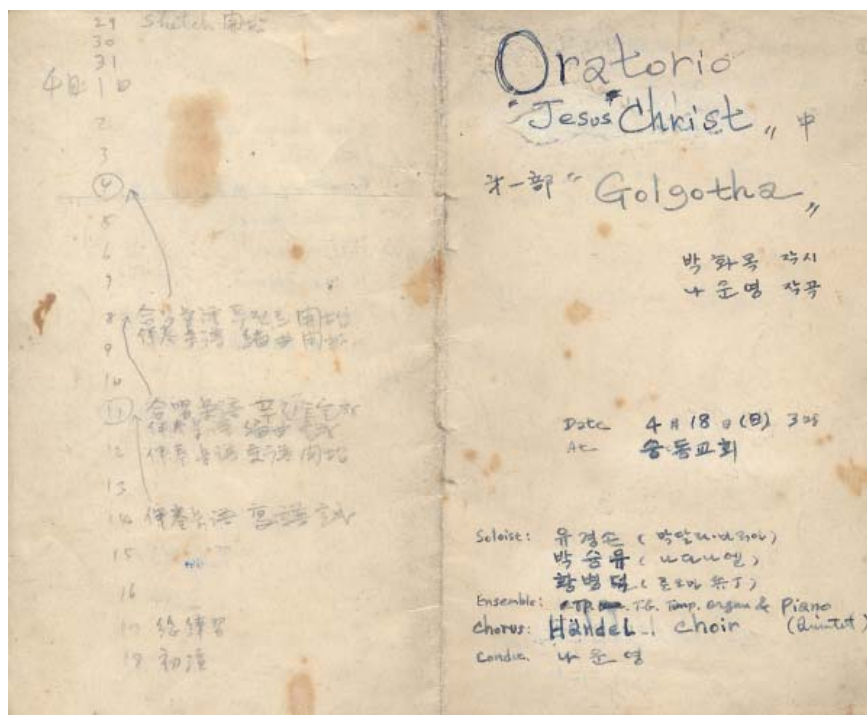 29 Sketch 開始
30
31
4月 1日
2
3
4
5
6
7
8 合唱樂譜 푸린트 開始
伴奏樂譜 編曲 開始
9
10
11 合唱樂譜
伴奏樂譜
12 伴奏樂譜 開始
13
14 伴奏樂譜
15
16
17 総練習
18 初演
Oratorio
"Jesus Christ" 中
第一部 "Golgotha"
박화목 작시
나운영 작곡
Date 4月 18日(日) 3時
At 승동교회
Soloist: 유경손 (막달라·마리아)
박승유 (나다나엘)
황병덕 (로오마 兵丁)
Ensemble: TP. T.G. Timp. organ & Piano
(Quintet)
Chorus: Händel choir
Conduc. 나운영